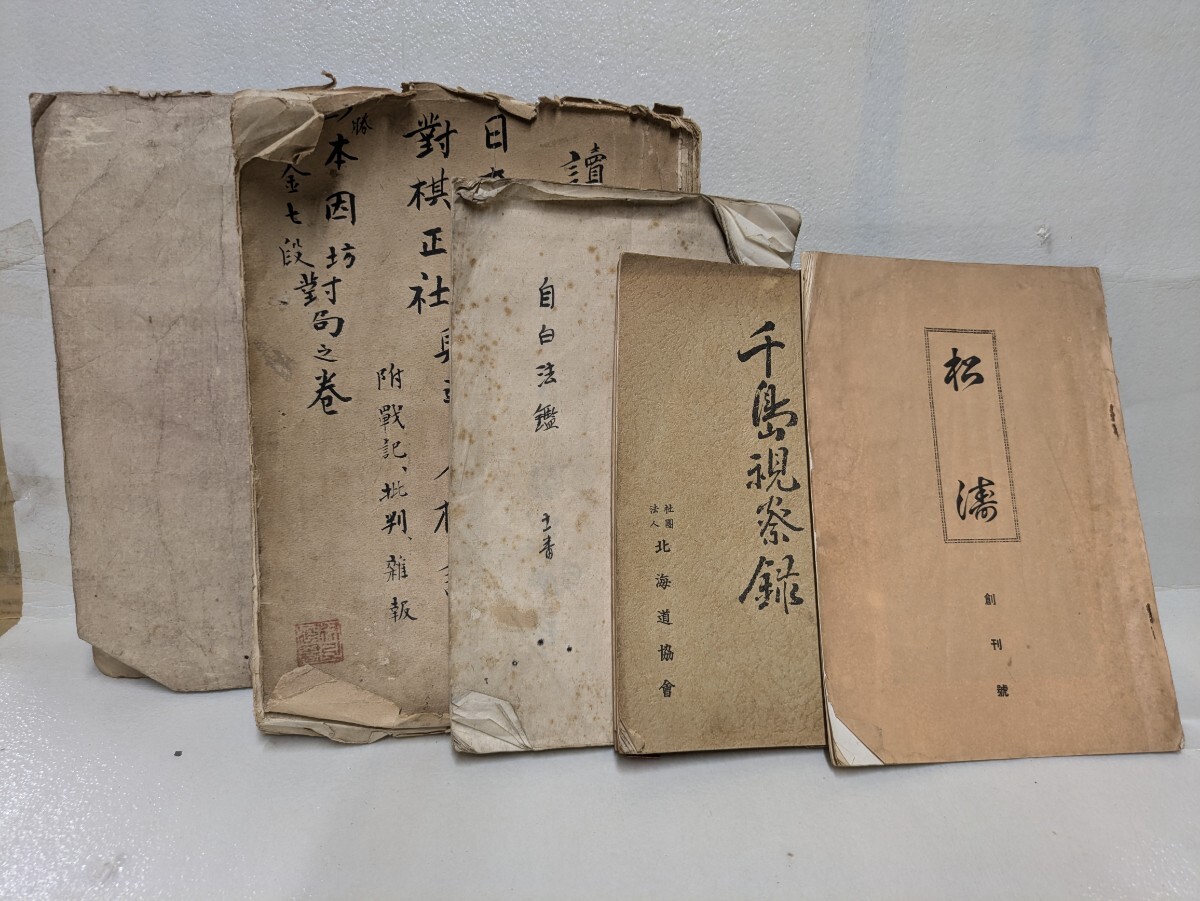 松濤
創刊號
千島視察錄
社團
法人
北海道協會
自白法鑑
讀
日
對棋正社
附戰記、批判、雑報
勝
本因坊対局之卷
金七段